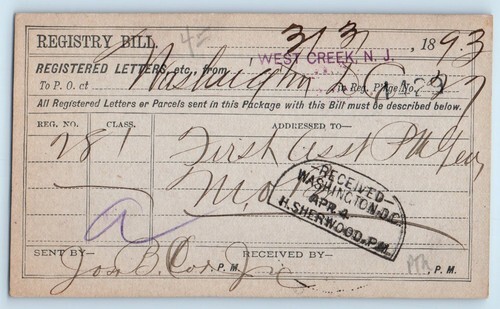 42
REGISTRY BILL. 3/31, 1893
REGISTERED LETTERS, etc., from WEST CREEK, N. J.
To P. O. at Washington D.C. in Reg. P'k'ge No.
All Registered Letters or Parcels sent in this Package with this Bill must be described below.
REG. NO. CLASS. ADDRESSED TO—
28 1 First Asst P.M. Gen
RECEIVED
WASHINGTON, D.C.
APR 4
H. SHERWOOD, P.M.
SENT BY— RECEIVED BY—
Jos. B. Cox Jr. P. M. , P. M.